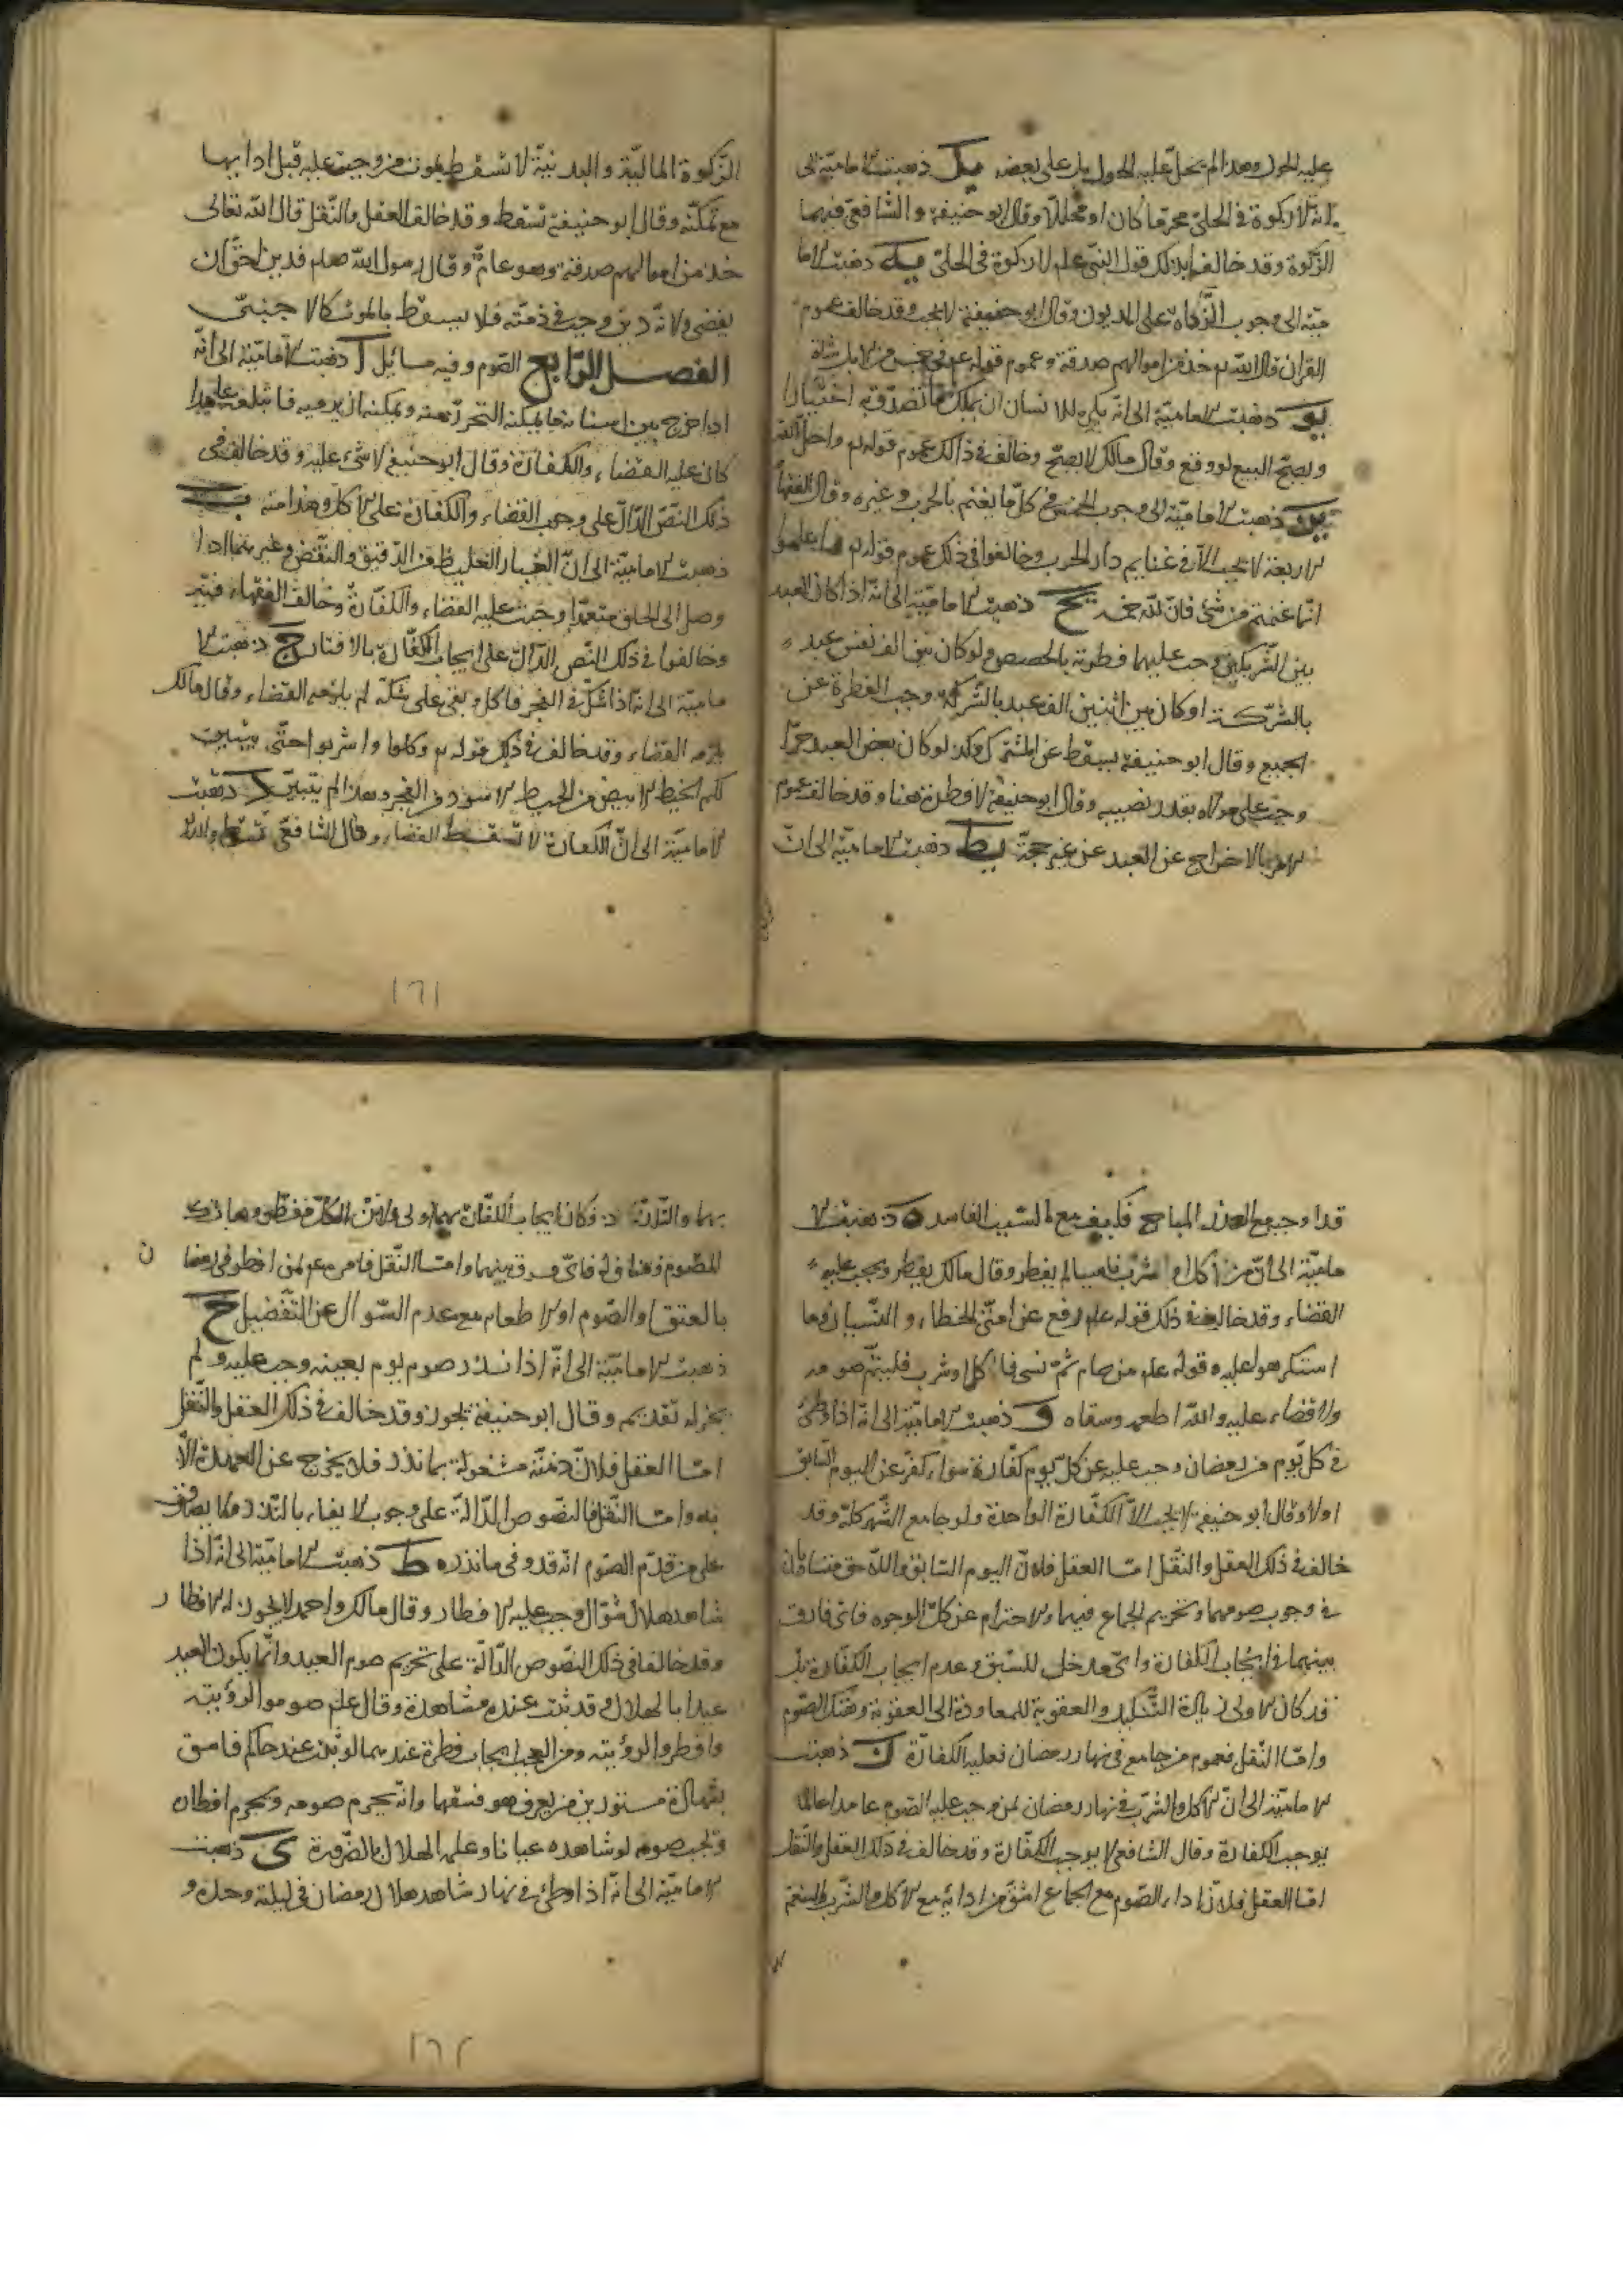 عليه الحول وهذا لم يحل عليه الحول بل على بعضه يد ذهبت الامامية الى
انه لا زكوة في الحلي محرما كان او محللا وقال ابو حنيفة والشافعي فيهما
الزكوة وقد خالفا بذلك قول النبي علم لا زكوة في الحلي يه ذهبت الاما
مية الى وجوب الزكاة على المديون وقال ابو حنيفة لا يجب وقد خالف عموم
القران قال الله تع خذ من اموالهم صدقة وعموم قوله عم في خمس من الابل شاة
يو ذهبت الامامية الى انه يكره للانسان ان يملك ما تصدق به اختيارا
ويصح البيع لو وقع وقال مالك لا يصح وخالف في ذالك عموم قوله تع واحل الله
يز ذهبت الامامية الى وجوب الخمس في كل ما يغنم بالحرب وغيره وقال الفقهاء
الاربعة لا يجب الا في غنايم دار الحرب وخالفوا في ذلك عموم قوله تع واعلموا
انما غنمتم من شئ فان لله خمسه يح ذهبت الامامية الى انه اذا كان العبد
بين الشريكين وجب عليهما فطرته بالحصص ولو كان بين الف نفس عبد
بالشركة او كان بين اثنين الف عبد بالشركة وجب الفطرة عن
الجميع وقال ابو حنيفة يسقط عن المشترك وكذا لو كان بعض العبد حرا
وجب على مولاه بقدر نصيبه وقال ابو حنيفة لا فطرة هنا وقد خالف عموم
الامر بالاخراج عن العبد عن غير حجة يط ذهبت الامامية الى ان
الزكوة المالية والبدنية لا تسقط بموت من وجبت عليه قبل ادايها
مع تمكنه وقال ابو حنيفة تسقط وقد خالف العقل والنقل قال الله تعالى
خذ من اموالهم صدقة وهو عام وقال رسول الله صلعم فدين الله احق ان
يقضى ولانه دين وجب في ذمته فلا يسقط بالموت كالاجنبي
الفصل الرابع الصوم وفيه مسائل آ ذهبت الامامية الى انه
اذا خرج بين اسنانه ما يمكنه التحرز عنه ويمكنه ان يرميه فابتلعه عامدا
كان عليه القضاء والكفارة وقال ابو حنيفة لا شئ عليه وقد خالف في
ذلك النص الدال على وجوب القضاء والكفارة على الاكل وهذا منه ب
ذهبت الامامية الى ان الغبار الغليظ من الدقيق والنفض وغيرهما اذا
وصل الى الحلق متعمدا وجبت عليه القضاء والكفارة وخالف الفقهاء فيه
وخالفوا في ذلك النص الدال على ايجاب الكفارة بالافطار ج ذهبت الا
مامية الى انه اذا شك في الفجر فاكل وبقى على شكه لم يلزمه القضاء وقال مالك
يلزمه القضاء وقد خالف في ذلك قوله تع وكلوا واشربوا حتى يتبين
لكم الخيط الابيض من الخيط الاسود من الفجر وهذا لم يتبين د ذهبت
الامامية الى ان الكفارة لا تسقط القضاء وقال الشافعي تسقط والله
١٦١
قد اوجب مع العذر المباح فكيف مع السبب الفاسد ه ذهبت الا
مامية الى ان من اكل او شرب ناسيا لم يفطر وقال مالك يفطر ويجب عليه
القضاء وقد خالف في ذلك قوله علم رفع عن امتي الخطاء والنسيان وما
استكرهوا عليه وقوله علم من صام ثم نسى فاكل او شرب فليتم صومه
ولا قضاء عليه والله اطعمه وسقاه و ذهبت الامامية الى انه اذا وطئ
في كل يوم من رمضان وجب عليه عن كل يوم كفارة سواء كفر عن اليوم السابق
اولا وقال ابو حنيفة لا يجب الا الكفارة الواحدة ولو جامع الشهر كله وقد
خالف في ذلك العقل والنقل اما العقل فلان اليوم السابق واللاحق متساويان
في وجوب صومهما وتحريم الجماع فيهما والاحترام عن كل الوجوه فاى فارق
بينهما في ايجاب الكفارة واى مدخل للسبق وعدم ايجاب الكفارة بل
قد كان الاولى زيادة التنكيل والعقوبة للمعاودة الى العقوبة وهتك الصوم
واما النقل فعموم من جامع في نهار رمضان فعليه الكفارة ز ذهبت
الامامية الى ان الاكل والشرب في نهار رمضان لمن وجب عليه الصوم عامدا عالما
يوجب الكفارة وقال الشافعي لا يوجب الكفارة وقد خالف في ذلك العقل والنقل
اما العقل فلان اداء الصوم مع الجماع اشق من ادائه مع الاكل والشرب
بهما والتلذذ فكان ايجاب الكفارة بهما اولى
للصوم فاى فرق بينهما واما النقل فامره علم لمن افطر في رمضان
بالعتق او الصوم او الاطعام مع عدم السوال عن التفضيل ح
ذهبت الامامية الى انه اذا نذر صوم يوم بعينه وجب عليه ولم
يجز له تقديمه وقال ابو حنيفة يجوز وقد خالف في ذلك العقل والنقل
اما العقل فلان ذمته مشغولة بما نذر فلا يخرج عن العهدة الا
به واما النقل فالنصوص الدالة على وجوب الايفاء بالنذر ولا يصدق
على من قدم الصوم انه قد وفى ما نذره ط ذهبت الامامية الى انه اذا
شاهد هلال شوال وجب عليه الافطار وقال مالك واحمد لا يجوز له الافطار
وقد خالفا في ذلك النصوص الدالة على تحريم صوم العيد وانما يكون العيد
عيدا بالهلال وقد ثبت عنده مشاهدة وقال علم صوموا لرؤيته
وافطروا لرؤيته ومن العجب ايجاب فطرة عندهما لو ثبت عند حاكم فاسق
بشهادة مستورين من يعرف هو فسقها وانه يحرم صومه ويحرم افطاره
ويجب صومه لو شاهده عيانا وعلم الهلال بالضرورة ى ذهبت
الامامية الى انه اذا وطئ في نهار شاهد هلال رمضان في ليلته وحده و
١٦٢